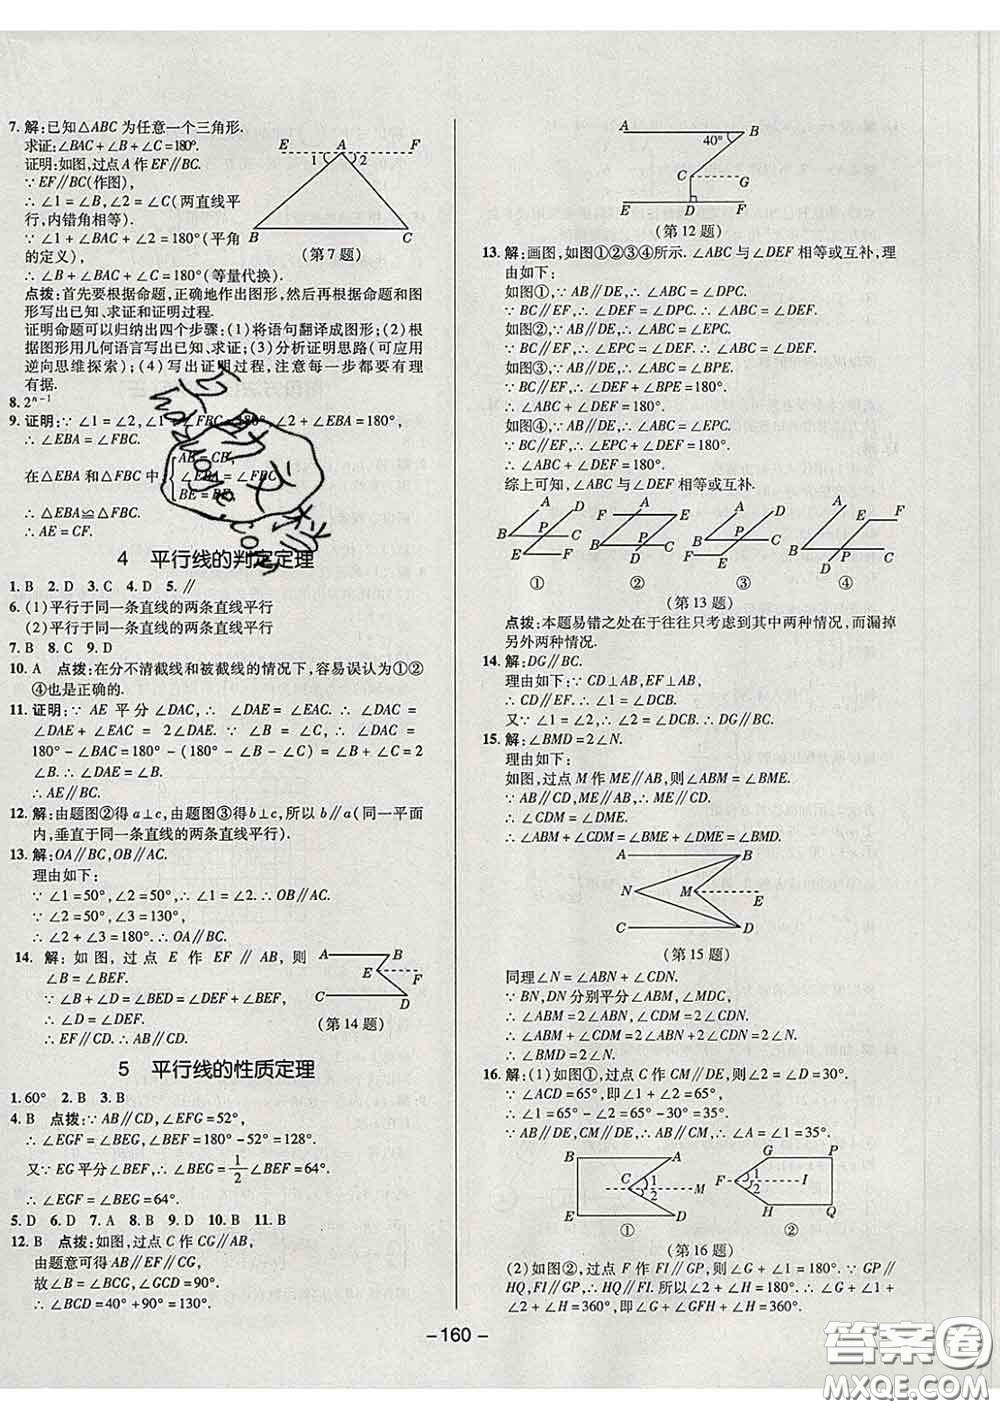 7. 解:已知△ABC 为任意一个三角形.
求证:∠BAC+∠B+∠C=180°.
证明:如图,过点 A 作 EF∥BC.
∵EF∥BC(作图),
∴∠1=∠B,∠2=∠C(两直线平
行,内错角相等).
∵∠1+∠BAC+∠2=180°(平角
的定义),
∴∠B+∠BAC+∠C=180°(等量代换).
E A F
1 2
B C
(第 7 题)
点拨:首先要根据命题,正确地作出图形,然后再根据命题和图
形写出已知、求证和证明过程.
证明命题可以归纳出四个步骤:(1)将语句翻译成图形;(2)根
据图形用几何语言写出已知、求证;(3)分析证明思路(可应用
逆向思维探索);(4)写出证明过程,注意每一步都要有理
有据.
8. 2ⁿ⁻¹
9. 证明:∵∠1=∠2,∠1+∠FBC=180°,∠2+∠EBA=180°,
∴∠EBA=∠FBC.
在△EBA 和△FBC 中
AB=CB,
∠EBA=∠FBC
BE=BF,
∴△EBA≌△FBC.
∴AE=CF.
4 平行线的判定定理
1. B 2. D 3. C 4. D 5. ∥
6. (1)平行于同一条直线的两条直线平行
(2)平行于同一条直线的两条直线平行
7. B 8. C 9. D
10. A 点拨:在分不清截线和被截线的情况下,容易误认为①②
④也是正确的.
11. 证明:∵AE 平分∠DAC,∴∠DAE=∠EAC.∴∠DAC=
∠DAE+∠EAC=2∠DAE.∵∠B=∠C,∴∠DAC=
180°-∠BAC=180°-(180°-∠B-∠C)=∠B+∠C=2
∠B.∴∠DAE=∠B.
∴AE∥BC.
12. 解:由题图②得 a⊥c,由题图③得 b⊥c,所以 b∥a(同一平面
内,垂直于同一条直线的两条直线平行).
13. 解:OA∥BC,OB∥AC.
理由如下:
∵∠1=50°,∠2=50°,∴∠1=∠2.∴OB∥AC.
∵∠2=50°,∠3=130°,
∴∠2+∠3=180°.∴OA∥BC.
14. 解:如图,过点 E 作 EF∥AB,则
∠B=∠BEF.
∵∠B+∠D=∠BED=∠BEF+∠DEF,
∴∠D=∠DEF.
∴EF∥CD.∴AB∥CD.
A B
E F
C D
(第 14 题)
5 平行线的性质定理
1. 60° 2. B 3. B
4. B 点拨:∵AB∥CD,∠EFG=52°,
∴∠EGF=∠BEG,∠BEF=180°-52°=128°.
又∵EG 平分∠BEF,∴∠BEG=1/2∠BEF=64°.
∴∠EGF=∠BEG=64°.
5. D 6. D 7. A 8. B 9. D 10. B 11. B
12. B 点拨:如图,过点 C 作 CG∥AB,
由题意可得 AB∥EF∥CG,
故∠B=∠BCG,∠GCD=90°.
∴∠BCD=40°+90°=130°.
A B
40°
C G
E D F
(第 12 题)
13. 解:画图,如图①②③④所示.∠ABC 与∠DEF 相等或互补,理
由如下:
如图①,∵AB∥DE,∴∠ABC=∠DPC.
∵BC∥EF,∴∠DEF=∠DPC.∴∠ABC=∠DEF.
如图②,∵AB∥DE,∴∠ABC=∠EPC.
∵BC∥EF,∴∠DEF=∠EPC.∴∠ABC=∠DEF.
如图③,∵AB∥DE,∴∠ABC=∠BPE.
∵BC∥EF,∴∠DEF+∠BPE=180°.
∴∠ABC+∠DEF=180°.
如图④,∵AB∥DE,∴∠ABC=∠EPC.
∵BC∥EF,∴∠EPC+∠DEF=180°.
∴∠ABC+∠DEF=180°.
综上可知,∠ABC 与∠DEF 相等或互补.
A D
B P C
E F
①
F A E
B P C
D
②
A D
B P C
F E
③
A E F
B P C
D
④
(第 13 题)
点拨:本题易错之处在于往往只考虑到其中两种情况,而漏掉
另外两种情况.
14. 解:DG∥BC.
理由如下:∵CD⊥AB,EF⊥AB,
∴CD∥EF.∴∠2=∠DCB.
又∵∠1=∠2,∴∠1=∠DCB.∴DG∥BC.
15. 解:∠BMD=2∠N.
理由如下:
如图,过点 M 作 ME∥AB,则∠ABM=∠BME.
∵AB∥CD,∴ME∥CD.
∴∠CDM=∠DME.
∴∠ABM+∠CDM=∠BME+∠DME=∠BMD.
A B
N M E
C D
(第 15 题)
同理∠N=∠ABN+∠CDN.
∵BN,DN 分别平分∠ABM,∠MDC,
∴∠ABM=2∠ABN,∠CDM=2∠CDN.
∴∠ABM+∠CDM=2∠ABN+2∠CDN=2∠N.
∴∠BMD=2∠N.
16. 解:(1)如图①,过点 C 作 CM∥DE,则∠2=∠D=30°.
∵∠ACD=65°,即∠1+∠2=65°,
∴∠1=65°-∠2=65°-30°=35°.
∵AB∥DE,CM∥DE,∴CM∥AB.∴∠A=∠1=35°.
B A
C 1 2 M
E D
①
G P
F 1 2 I
H Q
②
(第 16 题)
(2)如图②,过点 F 作 FI∥GP,则∠G+∠1=180°.∵GP∥
HQ,FI∥GP,∴HQ∥FI.所以∠2+∠H=180°.∴∠G+∠1+
∠2+∠H=360°,即∠G+∠GFH+∠H=360°.
-160-
答案圈
MXQE.COM